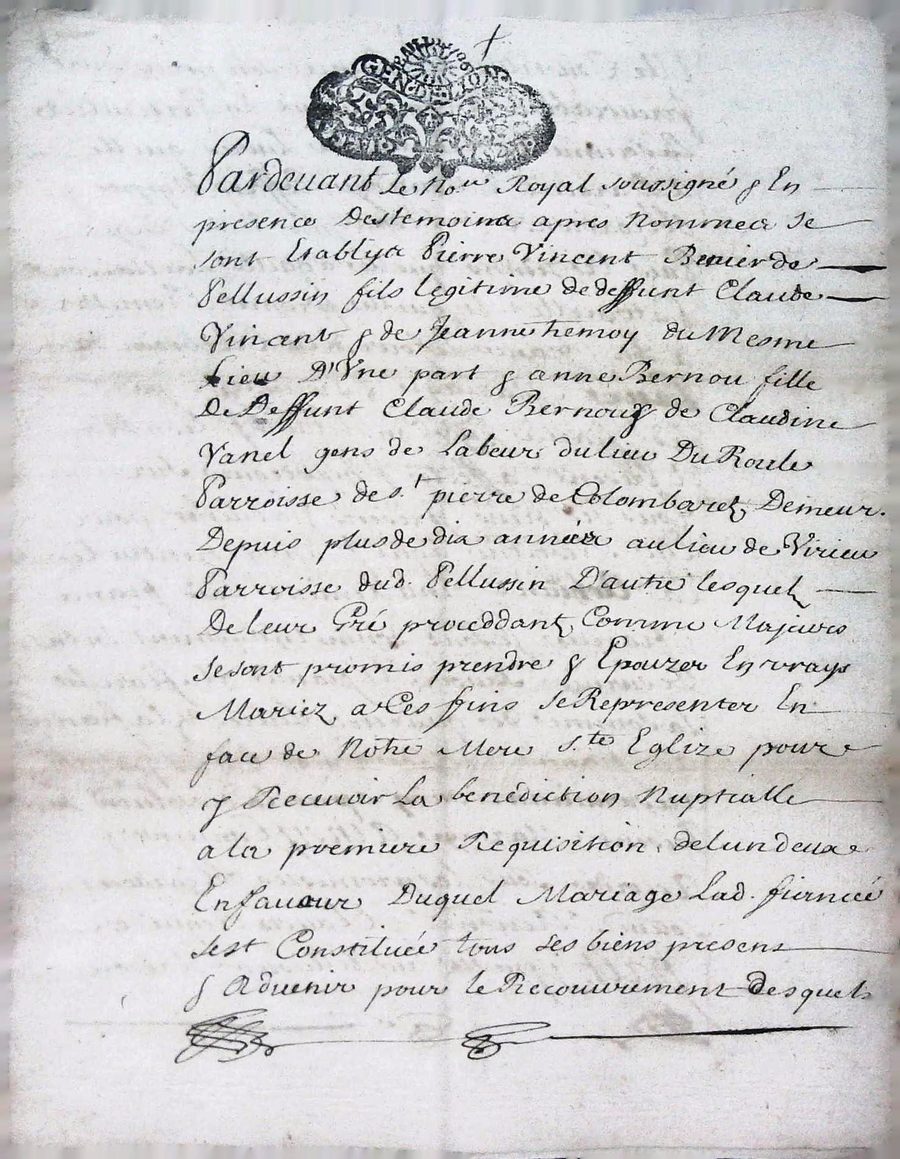 GEN·DE·LION
Pardevant Le No.re Royal soussigné & En
presence Destemoins apres Nommez Se
sont Etablys Pierre Vincent Benier de
Pellussin fils legitime de deffunt Claude
Vincent & de Jeanne themoy du Mesme
Lieu D'Vne part & anne Bernou fille
de Deffunt Claude Bernou & de Claudine
Vanel gens de Labeur du lieu Du Roule
Parroisse de s.t pierre de Colombaret Demeur.
Depuis plus de dix années au lieu de Virieu
Parroisse dud. Pellussin D'autre lesquels
De leur Gré proceddant Comme Majeurs
se sont promis prendre & Epouzer En vrays
Mariez a Ces fins se Representer En
face de Notre Mere s.te Eglize pour
y Recevoir La benediction Nuptialle
a la premiere Requisition de lun deux
En faveur Duquel Mariage Lad. fiencée
sest Constituée tous ses biens presens
& Advenir pour le Recouvrement Desquels